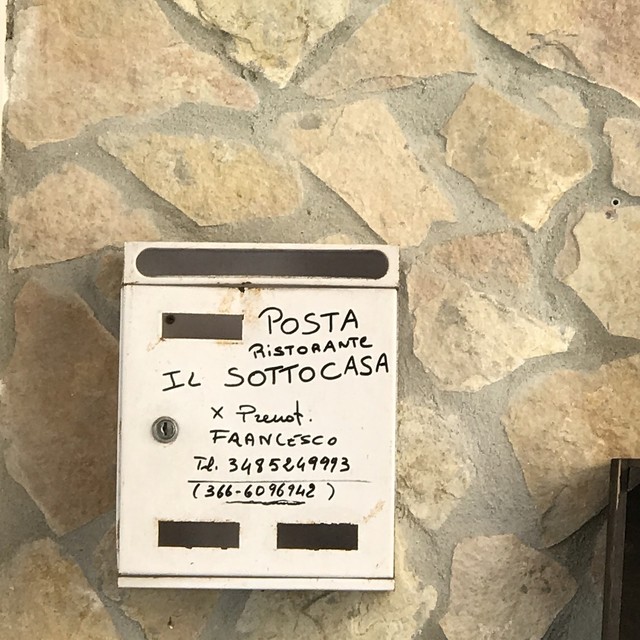 POSTA
RISTORANTE
IL SOTTOCASA
x Prenot.
FRANCESCO
Tel. 3485249993
(366-6096942)